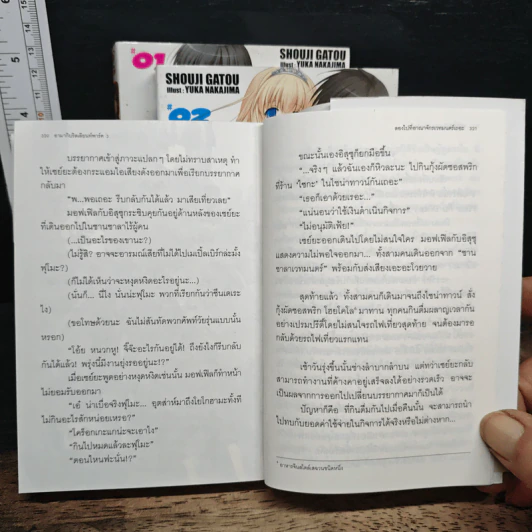 01
SHOUJI GATOU
Illust : YUKA NAKAJIMA
SHOUJI GATOU
Illust : YUKA NAKAJIMA
02
บรรยากาศเข้าสู่ภาวะแปลกๆ โดยไม่ทราบสาเหตุ ทำ
ให้เซย์ยะต้องกระแอมไอเสียงดังออกมาเพื่อเรียกบรรยากาศ
กลับมา
“พ...พอเถอะ รีบกลับกันได้แล้ว มาเสียเที่ยวเลย”
มอฟเฟิลกับอิสุซุกระซิบคุยกันอยู่ด้านหลังของเซย์ยะ
ที่เดินออกไปในชานชาลาไร้ผู้คน
(...เป็นอะไรของเขานะ?)
(ไม่รู้สิ? อาจจะอารมณ์เสียที่ไม่ได้ไปเมเปิ้ลเบิร์กล่ะมั้ง
ฟุโมะ)
(ก็ไม่ได้เห็นว่าจะหงุดหงิดอะไรอยู่นะ...)
(นั่นก็... นี่ไง นั่นน่ะฟุโมะ พวกที่เรียกกันว่าซึนเดเระ
ไง)
(ขอโทษด้วยนะ ฉันไม่สันทัดพวกศัพท์วัยรุ่นแบบนั้น
หรอก)
“โอ้ย หนวกหู! จิ๊จ๊ะอะไรกันอยู่ได้! ถึงยังไงก็รีบกลับ
กันได้แล้ว! พรุ่งนี้มีงานยุ่งรออยู่นะ!?”
เมื่อเซย์ยะพูดอย่างหงุดหงิดเช่นนั้น มอฟเฟิลก็ทำหน้า
ไม่ยอมรับออกมา
“เอ๋ น่าเบื่อจริงฟุโมะ... อุตส่าห์มาถึงโยโกฮามะทั้งที
ไม่กินอะไรสักหน่อยเหรอ?”
“ใครอีกเกะแกน่ะจะเอาไง”
“กินไปหมดแล้วล่ะฟุโมะ”
“ตอนไหนฟะนั่น!?”
ขณะนั้นเองอิสุซุก็ยกมือขึ้น
“...จริงๆ แล้วฉันเองก็หิวล่ะนะ ไปกินกุ้งผัดซอสพริก
ที่ร้าน ‘ไซกะ’ ในไชน่าทาวน์กันเถอะ”
“เธอก็เอาด้วยเรอะ...”
“แน่นอนว่าใช้เงินดำเนินกิจการ”
“ไม่อนุมัติเฟ้ย!”
เซย์ยะออกเดินไปโดยไม่สนใจใคร มอฟเฟิลกับอิสุซุ
แสดงความไม่พอใจออกมา... ทั้งสามคนเดินออกจาก “ชาน
ชาลาเวทมนตร์” พร้อมกับส่งเสียงเอะอะโวยวาย
สุดท้ายแล้ว ทั้งสามคนก็เดินมาจนถึงไชน่าทาวน์ สั่ง
กุ้งผัดซอสพริก มาทาน ทุกคนกินดื่มผลาญเวลากัน
อย่างเปรมปรีดิ์โดยไม่สนใจรถไฟเที่ยวสุดท้าย จนต้องมารอ
กลับด้วยรถไฟเที่ยวแรกแทน
เช้าวันรุ่งขึ้นนั้นช่างลำบากลำบน แต่ทว่าเซย์ยะกลับ
สามารถทำงานที่ค้างคาอยู่เสร็จลงได้อย่างรวดเร็ว อาจจะ
เป็นผลจากการออกไปเปลี่ยนบรรยากาศมาก็เป็นได้
ปัญหาก็คือ ที่กินดื่มกันไปเมื่อคืนนั้น จะสามารถนำ
ไปทบกับยอดค่าใช้จ่ายในกิจการได้จริงหรือไม่ต่างหาก...